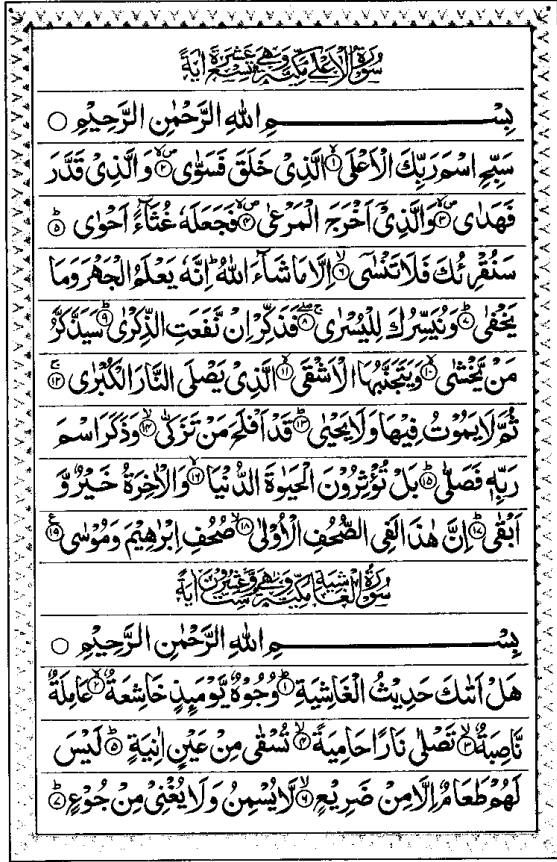 سُوْرَةُ الْاَعْلٰى مَكِّيَّةٌ وَّهِيَ تِسْعَ عَشْرَةَ اٰيَةً
بِسْمِ اللّٰهِ الرَّحْمٰنِ الرَّحِيْمِ ○
سَبِّحِ اسْمَ رَبِّكَ الْاَعْلَى ۙ﴿۱﴾ الَّذِيْ خَلَقَ فَسَوّٰى ۪ۙ﴿۲﴾ وَالَّذِيْ قَدَّرَ
فَهَدٰى ۪ۙ﴿۳﴾ وَالَّذِيْۤ اَخْرَجَ الْمَرْعٰى ۪ۙ﴿۴﴾ فَجَعَلَهٗ غُثَآءً اَحْوٰى ؕ﴿۵﴾
سَنُقْرِئُكَ فَلَا تَنْسٰۤى ۙ﴿۶﴾ اِلَّا مَا شَآءَ اللّٰهُ ؕ اِنَّهٗ يَعْلَمُ الْجَهْرَ وَمَا
يَخْفٰى ؕ﴿۷﴾ وَنُيَسِّرُكَ لِلْيُسْرٰى ۚۖ﴿۸﴾ فَذَكِّرْ اِنْ نَّفَعَتِ الذِّكْرٰى ؕ﴿۹﴾ سَيَذَّكَّرُ
مَنْ يَّخْشٰى ۙ﴿۱۰﴾ وَيَتَجَنَّبُهَا الْاَشْقَى ۙ﴿۱۱﴾ الَّذِيْ يَصْلَى النَّارَ الْكُبْرٰى ۚ﴿۱۲﴾
ثُمَّ لَا يَمُوْتُ فِيْهَا وَلَا يَحْيٰى ؕ﴿۱۳﴾ قَدْ اَفْلَحَ مَنْ تَزَكّٰى ۙ﴿۱۴﴾ وَذَكَرَ اسْمَ
رَبِّهٖ فَصَلّٰى ؕ﴿۱۵﴾ بَلْ تُؤْثِرُوْنَ الْحَيٰوةَ الدُّنْيَا ۖ﴿۱۶﴾ وَالْاٰخِرَةُ خَيْرٌ وَّ
اَبْقٰى ؕ﴿۱۷﴾ اِنَّ هٰذَا لَفِى الصُّحُفِ الْاُوْلٰى ۙ﴿۱۸﴾ صُحُفِ اِبْرٰهِيْمَ وَمُوْسٰى ﴿۱۹﴾
سُوْرَةُ الْغَاشِيَةِ مَكِّيَّةٌ وَّهِيَ سِتٌّ وَّعِشْرُوْنَ اٰيَةً
بِسْمِ اللّٰهِ الرَّحْمٰنِ الرَّحِيْمِ ○
هَلْ اَتٰىكَ حَدِيْثُ الْغَاشِيَةِ ؕ﴿۱﴾ وُجُوْهٌ يَّوْمَىِٕذٍ خَاشِعَةٌ ۙ﴿۲﴾ عَامِلَةٌ
نَّاصِبَةٌ ۙ﴿۳﴾ تَصْلٰى نَارًا حَامِيَةً ۙ﴿۴﴾ تُسْقٰى مِنْ عَيْنٍ اٰنِيَةٍ ؕ﴿۵﴾ لَيْسَ
لَهُمْ طَعَامٌ اِلَّا مِنْ ضَرِيْعٍ ۙ﴿۶﴾ لَّا يُسْمِنُ وَلَا يُغْنِيْ مِنْ جُوْعٍ ؕ﴿۷﴾